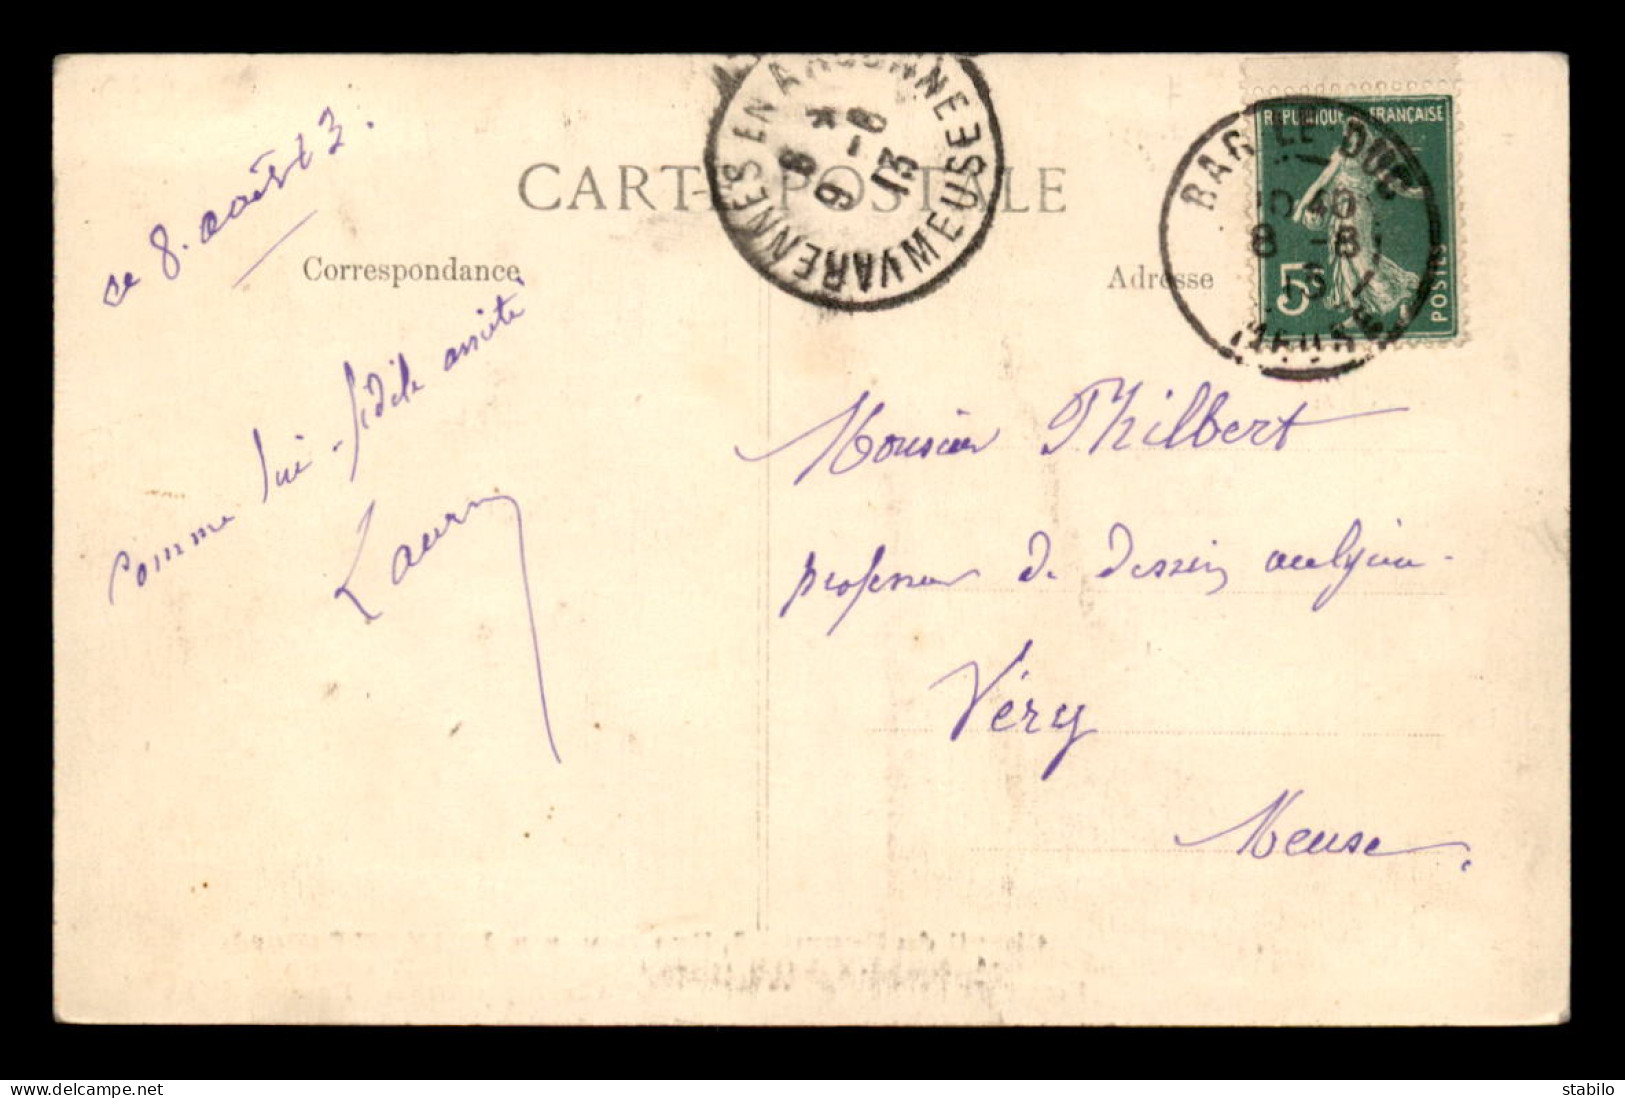 ce 8. août 13.
CARTE POSTALE
Correspondance
Adresse
VARENNES EN ARGONNE
MEUSE
8 *
9 -8
13
BAR LE DUC
10 40
8 -8
13
MEUSE
REPUBLIQUE FRANÇAISE
5c
POSTES
comme lui - fidèle amitié
Monsieur Philbert
professeur de dessin au lycée
Véry
Meuse.
stabilo